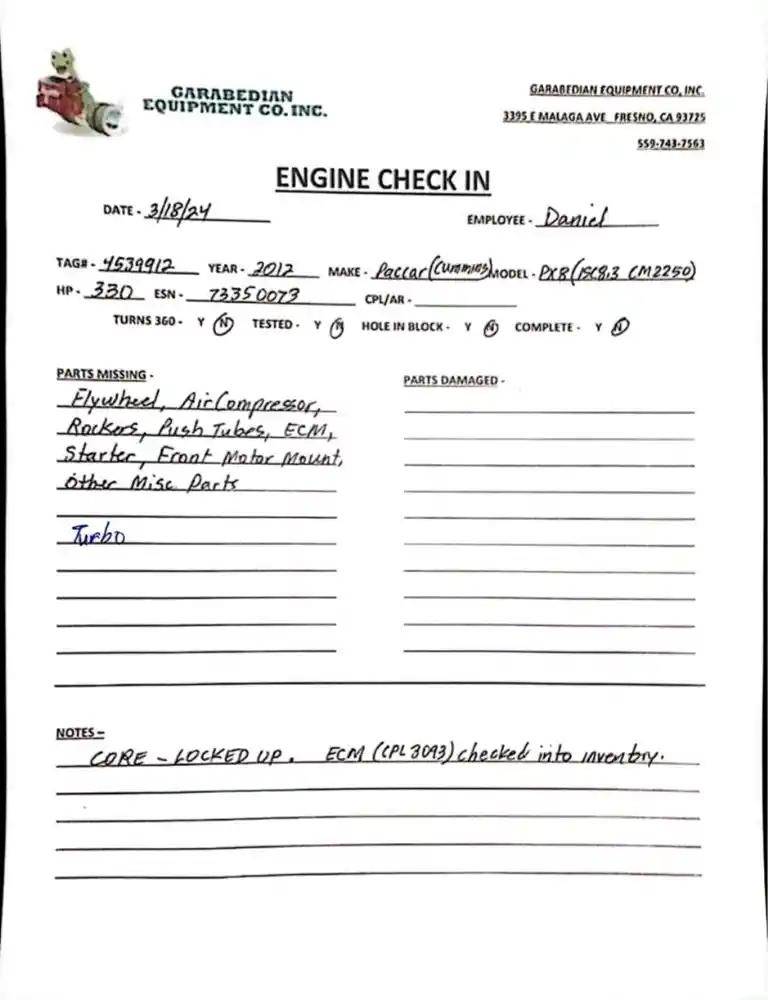 GARABEDIAN
EQUIPMENT CO. INC.
GARABEDIAN EQUIPMENT CO, INC.
3395 E MALAGA AVE FRESNO, CA 93725
559-743-7563
ENGINE CHECK IN
DATE - 3/18/24 EMPLOYEE - Daniel
TAG# - 4539912 YEAR - 2012 MAKE - Paccar (Cummins) MODEL - PX8 (ISC8.3 CM2250)
HP - 330 ESN - 73350073 CPL/AR -
TURNS 360 - Y N TESTED - Y N HOLE IN BLOCK - Y N COMPLETE - Y N
PARTS MISSING - PARTS DAMAGED -
Flywheel, Air Compressor,
Rockers, Push Tubes, ECM,
Starter, Front Motor Mount,
Other Misc Parts
Turbo
NOTES -
CORE - LOCKED UP. ECM (CPL 3093) checked into inventory.